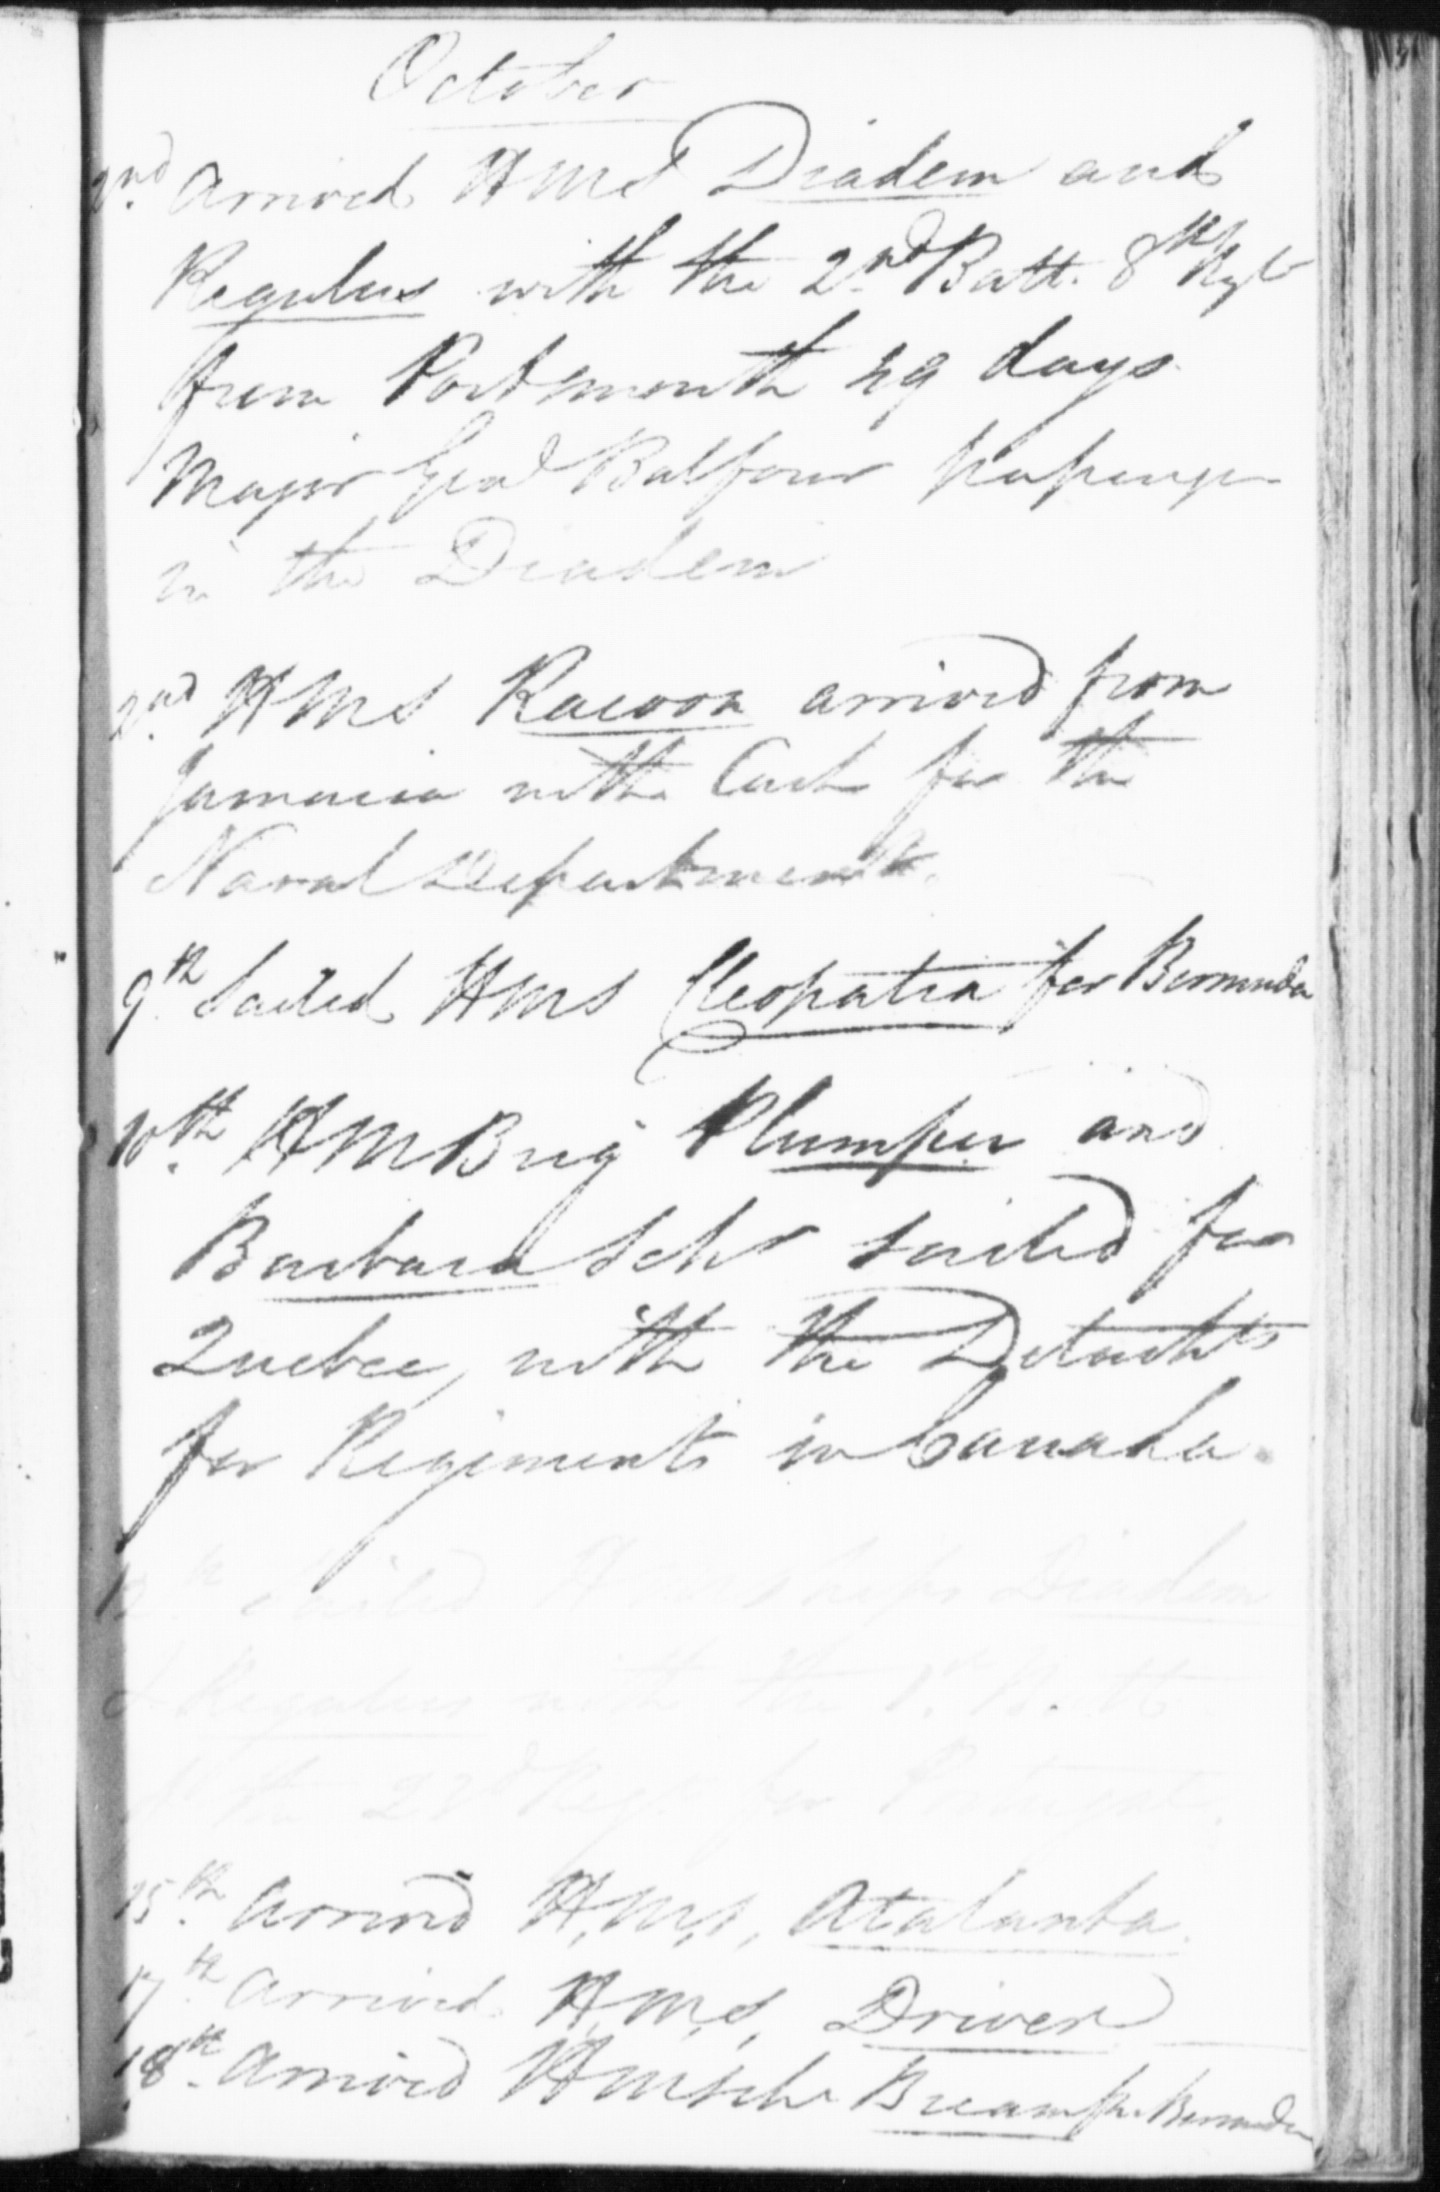 October
2nd. Arrived HMS Diadem and
Regulus with the 2nd Batt. 8th Rgt
from Portsmouth 29 days
Major Genl Balfour passenger
in the Diadem
2nd. HMS Racoon arrived from
Jamaica with Cash for the
Naval Department.
9th Sailed HMS Cleopatra for Bermuda
10th. HM Brig Plumper and
Barbara Schr sailed for
Quebec, with the Detachts
for Regiments in Canada.
12th Sailed HM Ships Diadem
& Regulus with the 1st Batt.
the 23d Regt. for Portugal.
15th. Arrived H,M,S, Atalanta.
17th. Arrived H,M,S, Driver
18th. Arrived HM Schr Bream fm Bermuda